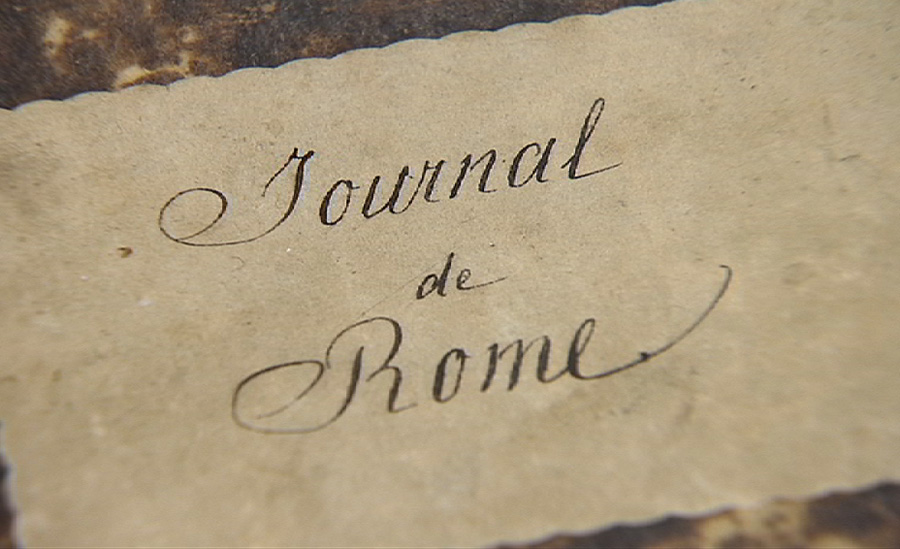 Journal
de
Rome